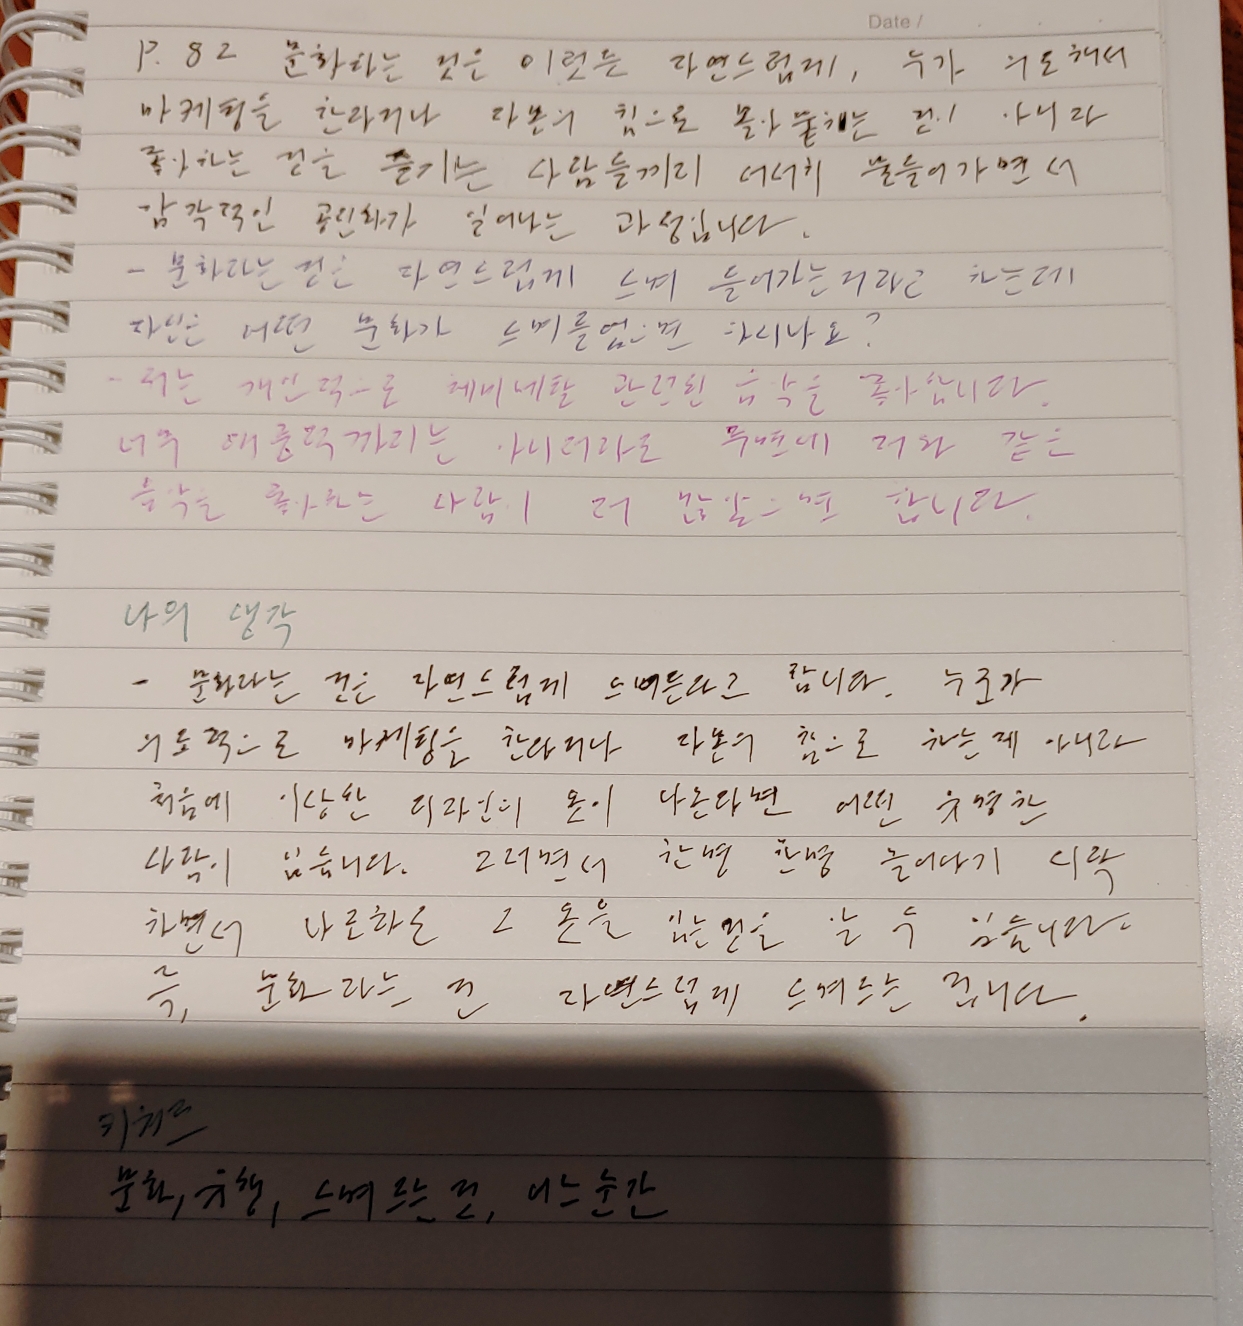 Date /
P. 82 문화라는 것은 이렇듯 자연스럽게, 누가 의도해서
마케팅을 한다거나 자본의 힘으로 몰아붙이는 것이 아니라
좋아하는 것을 즐기는 사람들끼리 서서히 물들어가면서
감각적인 공진화가 일어나는 과정입니다.
- 문화라는 것은 자연스럽게 스며 들어가는거라고 하는데
자신은 어떤 문화가 스며들었으면 하시나요?
- 저는 개인적으로 관련한 음악을 좋아합니다.
너무 대중적까지는 아니더라도 주변에 저와 같은
음악을 좋아하는 사람이 더 많았으면 합니다.
나의 생각
- 문화라는 것은 자연스럽게 스며든다고 합니다. 누군가
의도적으로 마케팅을 한다거나 자본의 힘으로 하는게 아니라
처음에 이상한 디자인의 옷이 나온다면 어떤 유명한
사람이 입습니다. 그러면서 한명 한명 늘어나기 시작
하면서 너도나도 그 옷을 입는것을 볼 수 있습니다.
즉, 문화라는 건 자연스럽게 스며드는 겁니다.
키워드
문화, 유행, 스며드는 것, 어느순간